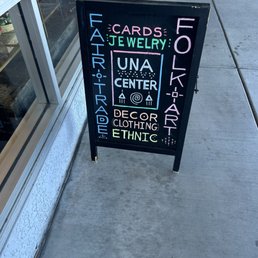 FAIR·TRADE
CARDS
JEWELRY
UNA
CENTER
DECOR
CLOTHING
ETHNIC
FOLK·ART